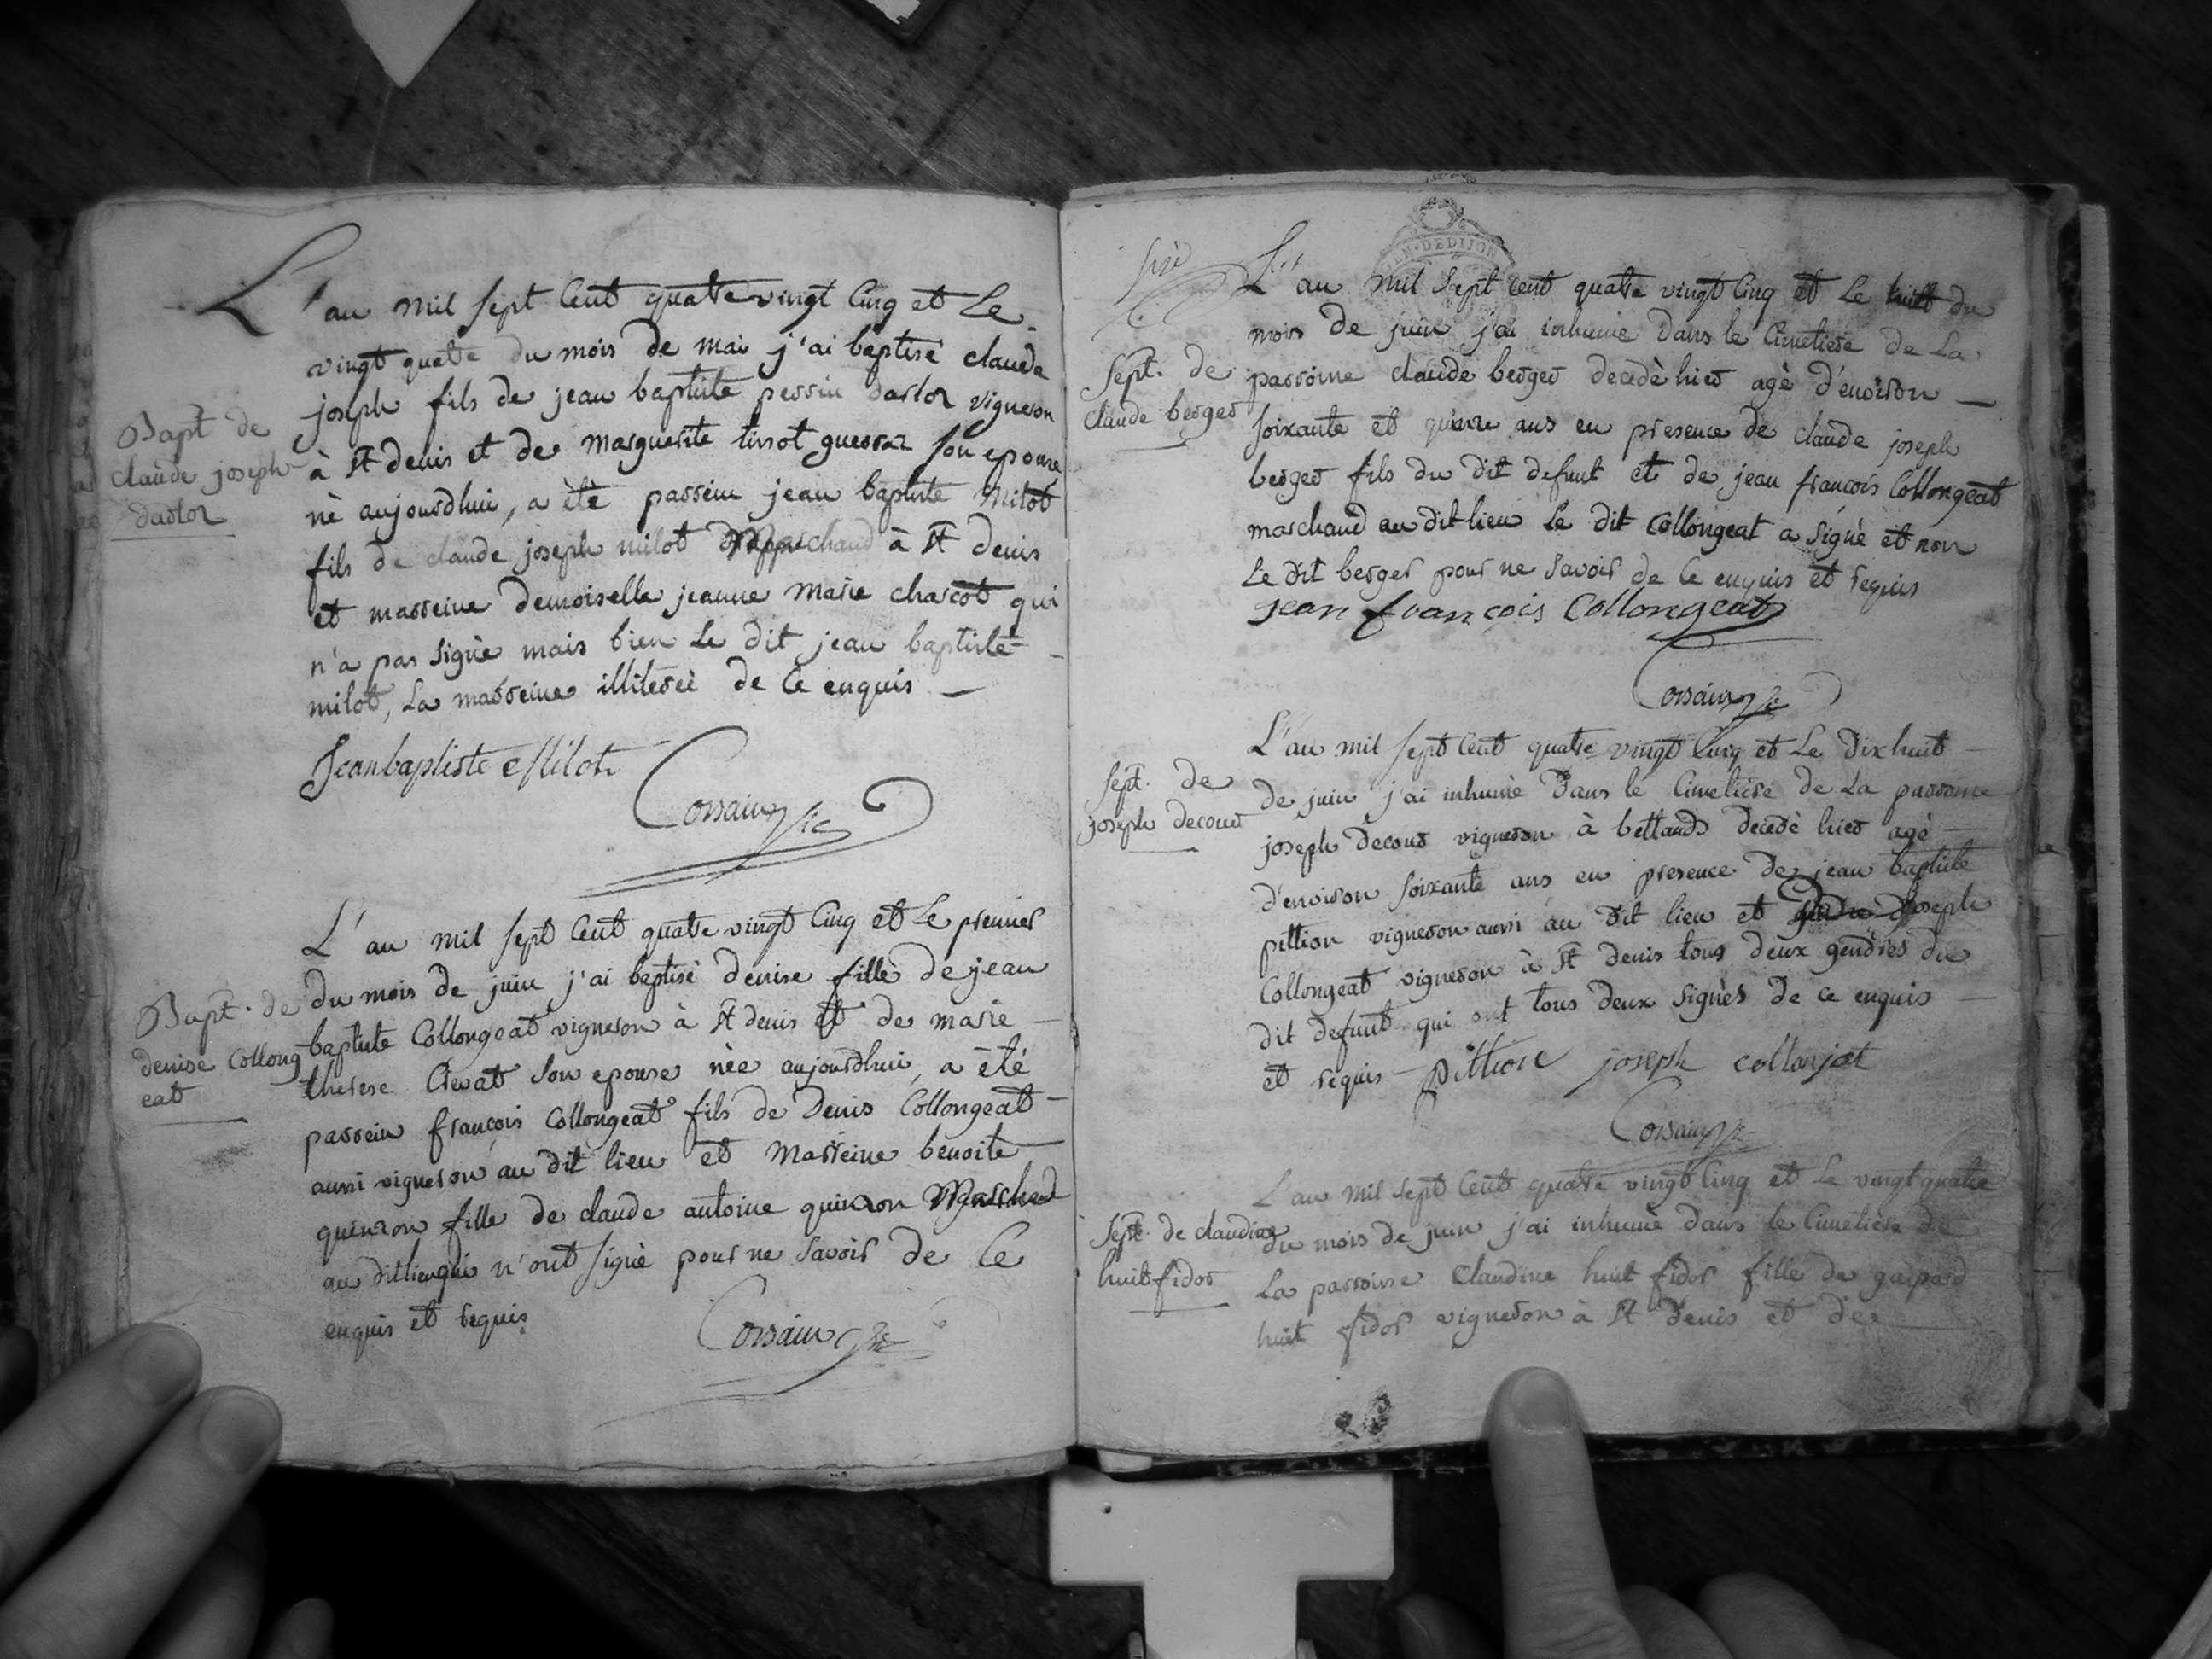 L'an mil sept cent quatre vingt cinq et le
vingt quatre du mois de mai j'ai baptisé claude
joseph fils de jean baptiste perrin darloz vigneron
à St denis et de marguerite tissot guerraz son epouse
nè aujourdhui, a étè parrein jean baptiste milot
fils de claude joseph milot marchand à St denis
et marreine demoiselle jeanne marie charcot qui
n'a pas signè mais bien le dit jean baptiste
milot, la marreine illiterèe de ce enquis
Bapt de
claude joseph
darloz
Jean baptiste Milot
Corsain
L'an mil sept cent quatre vingt cinq et le premier
du mois de juin j'ai baptisè denise fille de jean
baptiste Collongeat vigneron à St denis et de marie
therese Clerat son epouse nèe aujourdhui, a étè
parrein françois Collongeat fils de Denis Collongeat
aussi vigneron au dit lieu et Marreine benoite
quinson fille de claude antoine quinson Marchand
au dit lieu qui n'ont signè pour ne savoir de ce
enquis et requis
Bapt. de
denise Collong
eat
Corsain
L'an mil sept cent quatre vingt cinq et le huit du
mois de juin j'ai inhumè dans le cimetiere de la
parroisse claude berger decedè hier agè d'environ
soixante et quinze ans en presence de claude joseph
berger fils du dit defunt et de jean françois Collongeat
marchand au dit lieu le dit Collongeat a signè et non
le dit berger pour ne savoir de ce enquis et requis
Sept. de
claude berger
jean francois Collongeat
Corsain
L'an mil sept cent quatre vingt cinq et le dix huit
de juin j'ai inhumè dans le cimetiere de la parroisse
joseph decour vigneron à bettand decedè hier agè
d'environ soixante ans en presence de jean baptiste
pittion vigneron aussi au dit lieu et joseph
Collongeat vigneron à St denis tous deux gendres du
dit defunt qui ont tous deux signès de ce enquis
et requis pittion joseph collonjat
Sept. de
joseph decour
Corsain
L'an mil sept cent quatre vingt cinq et le vingt quatre
du mois de juin j'ai inhumè dans le cimetiere de
la parroisse Claudine huit fidor fille de gaspard
huit fidor vigneron à St denis et de
Sept. de claudine
huit fidor